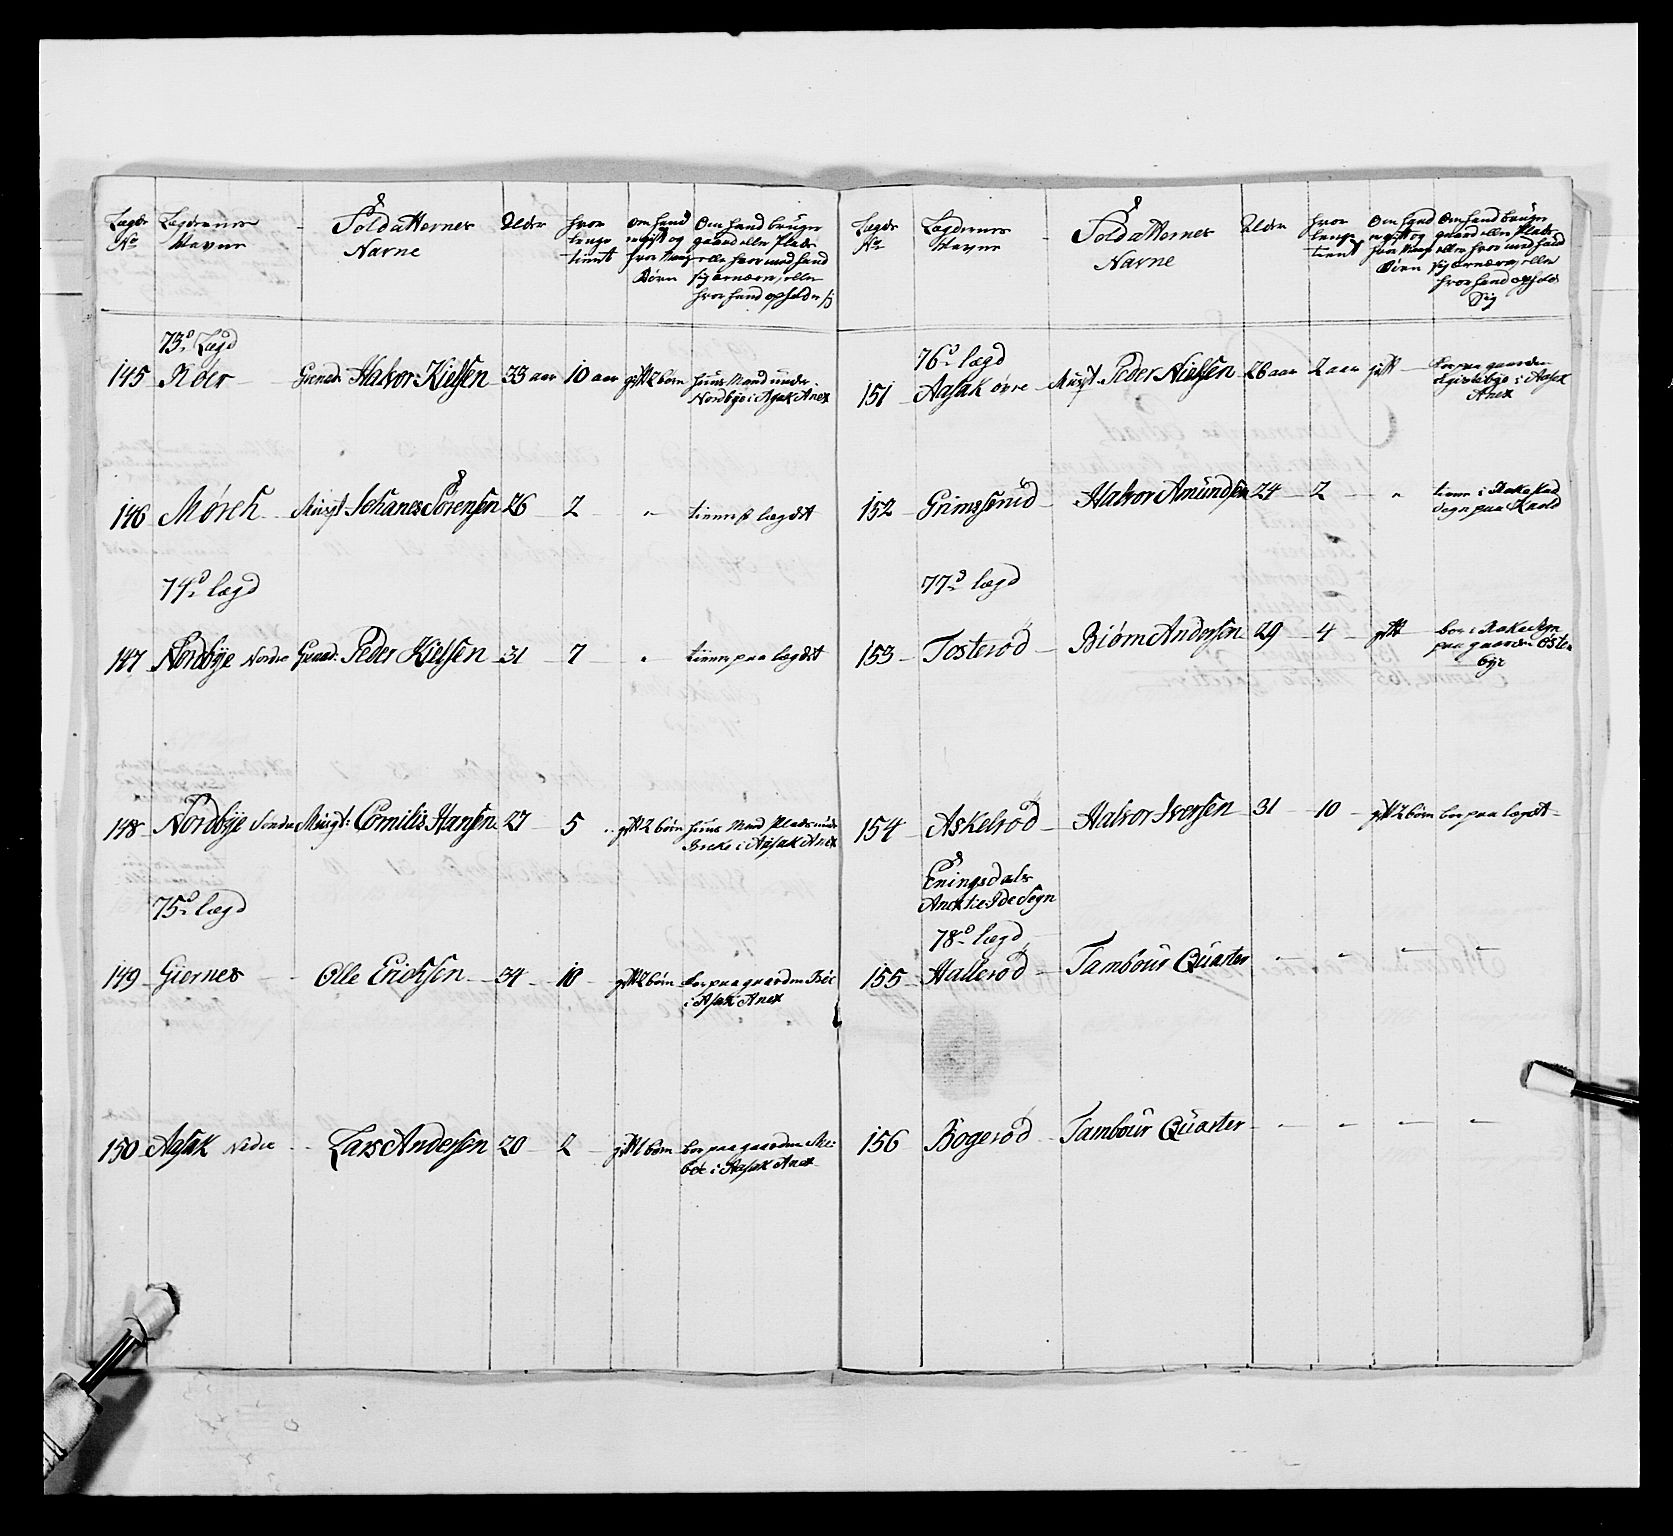 Lægds No
Lægdernes Navne
Soldatternes Navne
Alder
hvor lenge tient
Om hand er gift og hvor mange Börn
Om hand bruger gaard eller Plads eller hvor med hand sig ernærer, eller hvor hand opholder sig
73de Lægd
145 Röer Grenad: Halvor Kielsen 33 aar 10 aar gift 2 börn huus Mand under Nordbye i Asak Anex
146 Mørch Musqt Johanes Sörensen 26 2 " tiener i lægdet
74de lægd
147 Nordbye Nordre Grenad: Peder Kielsen 31 7 " tiener paa lægdet
148 Nordbye Söndre Musqt: Cornilis Hansen 27 5 gift 2 börn huus Mand Plads under Breke i Aasak Anex
75de lægd
149 Giernes Olle Erichsen 34 10 gift 2 börn boer paa gaarden i Asak Anex
150 Aasak Nedre Lars Andersen 20 2 gift 1 börn boer paa gaarden i Aasak Anex
Lægds No
Lægdernes Navne
Soldatternes Navne
Alder
hvor lenge tient
Om hand er gift og hvor Mange Börn
Om hand bruger gaard eller Plads, eller hvor med hand sig ernærer, eller hvor hand opholder Sig
76de lægd
151 Aasak övre Musqt Peder Nielsen 26 aar 2 aar gift boer paa gaarden i Aasak Anex
152 Grimsrud Halvor Amundsen 24 2 " tiener i Rakestad Segn paa
77de lægd
153 Tosteröd Biörn Andersen 29 4 gift boer i Rakestad Segn paa gaarden Östenbye
154 Askelröd Halvor Iversen 31 10 gift 2 börn boer paa lægdet
Eningsdals Anex til Ide Segn
78de lægd
155 Halleröd Tambour Quarter - - - -
156 Bogeröd Tambour Quarter - - - -